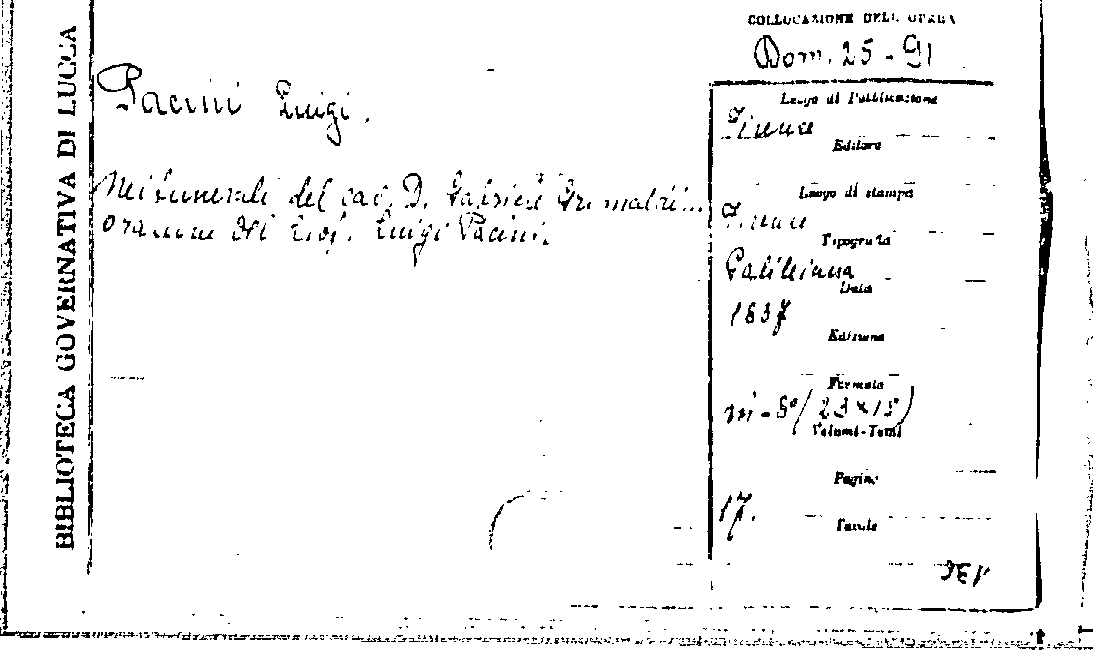 BIBLIOTECA GOVERNATIVA DI LUCCA
COLLOCAZIONE DELL' OPERA
Dom. 25 - 91
Pacini Luigi.
Nei funerali del cav. D. Gabriele Grimaldi...
orazione del Prof. Luigi Pacini.
Luogo di Pubblicazione
Firenze
Editore
Luogo di stampa
Firenze
Tipografia
Galileiana
Data
1837
Edizione
Formato
in-8°(23×15)
Volumi-Tomi
Pagine
17.
Tavole